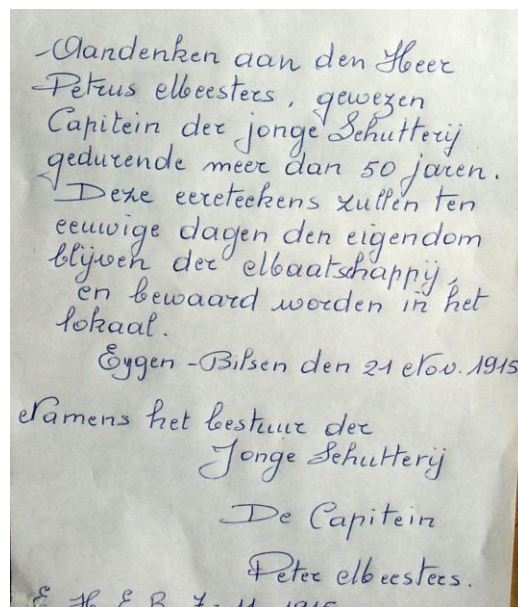 Aandenken aan den Heer
Petrus Meesters, gewezen
Capitein der jonge Schutterij
gedurende meer dan 50 jaren.
Deze eereteekens zullen ten
eeuwige dagen den eigendom
blijven der Maatschappij,
en bewaard worden in het
lokaal.
Eygen-Bilsen den 21 Nov. 1915
Namens het bestuur der
Jonge Schutterij
De Capitein
Peter Meesters.